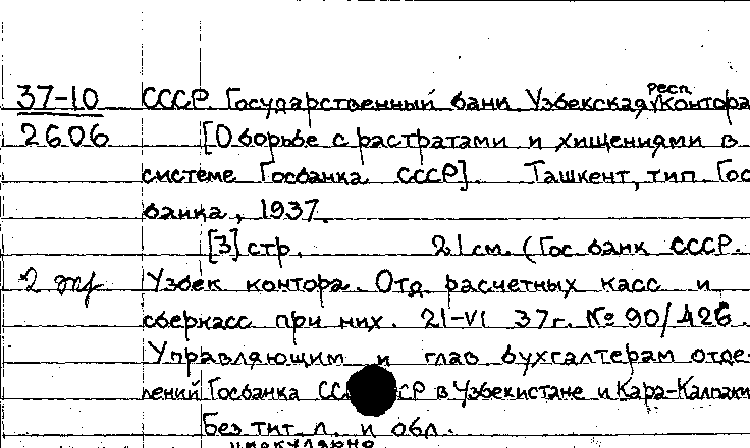 37-10 СССР. Государственный банк Узбекская респ. контора
2606 [О борьбе с растратами и хищениями в
системе Госбанка СССР]. Ташкент, тип. Гос
банка, 1937.
[3] стр. 21 см. (Гос банк СССР.
2 экз Узбек контора. Отд. расчетных касс и
сберкасс при них. 21-VI 37г. № 90/426.
Управляющим и глав бухгалтерам отде
лений Госбанка СССР в Узбекистане и Кара-Калпаки
Без тит. л. и обл.
циркулярно